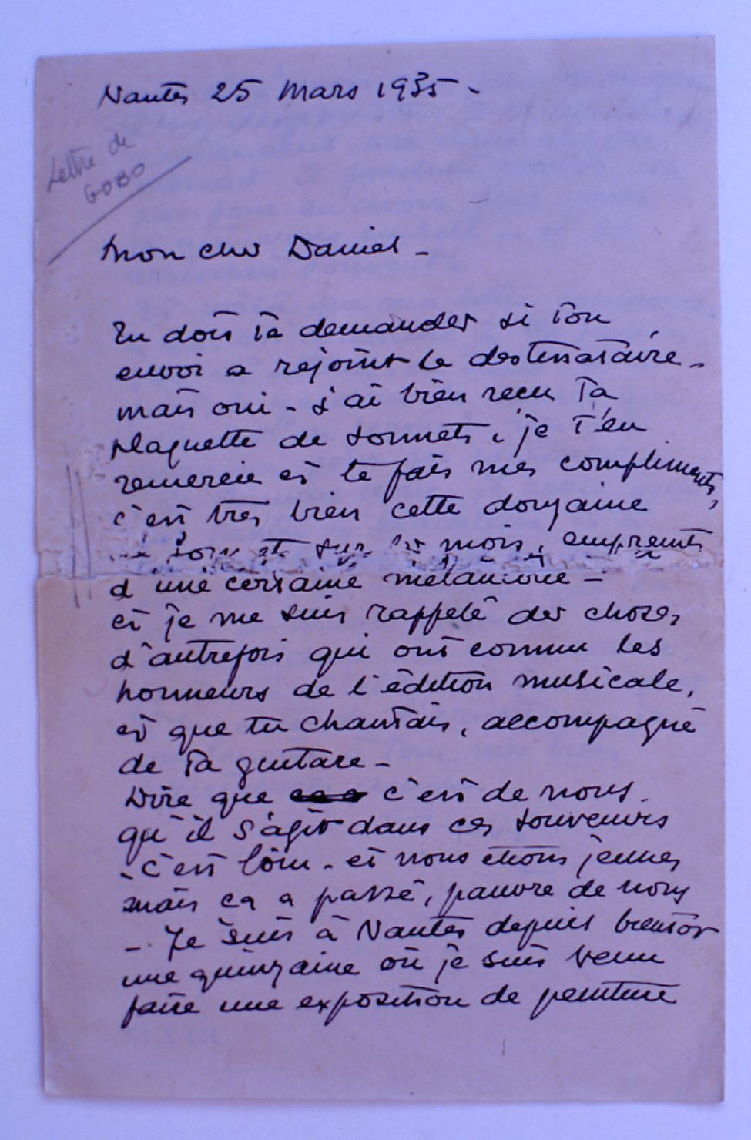 Nantes 25 Mars 1935 -
Lettre de
GOBO
Mon cher Daniel -
Tu dois te demander si ton
envoi a rejoint le destinataire -
mais oui - j'ai bien reçu ta
plaquette de sonnets, je t'en
remercie et te fais mes compliments,
c'est très bien cette douzaine
sur les mois, empreints
d'une certaine mélancolie -
et je me suis rappelé des choses
d'autrefois qui ont connu les
honneurs de l'édition musicale,
et que tu chantais, accompagné
de ta guitare -
Dire que c'est de nous
qu'il s'agit dans ces souvenirs
c'est loin - et nous étions jeunes
mais ça a passé, pauvre de nous
- Je suis à Nantes depuis bientôt
une quinzaine où je suis venu
faire une exposition de peinture